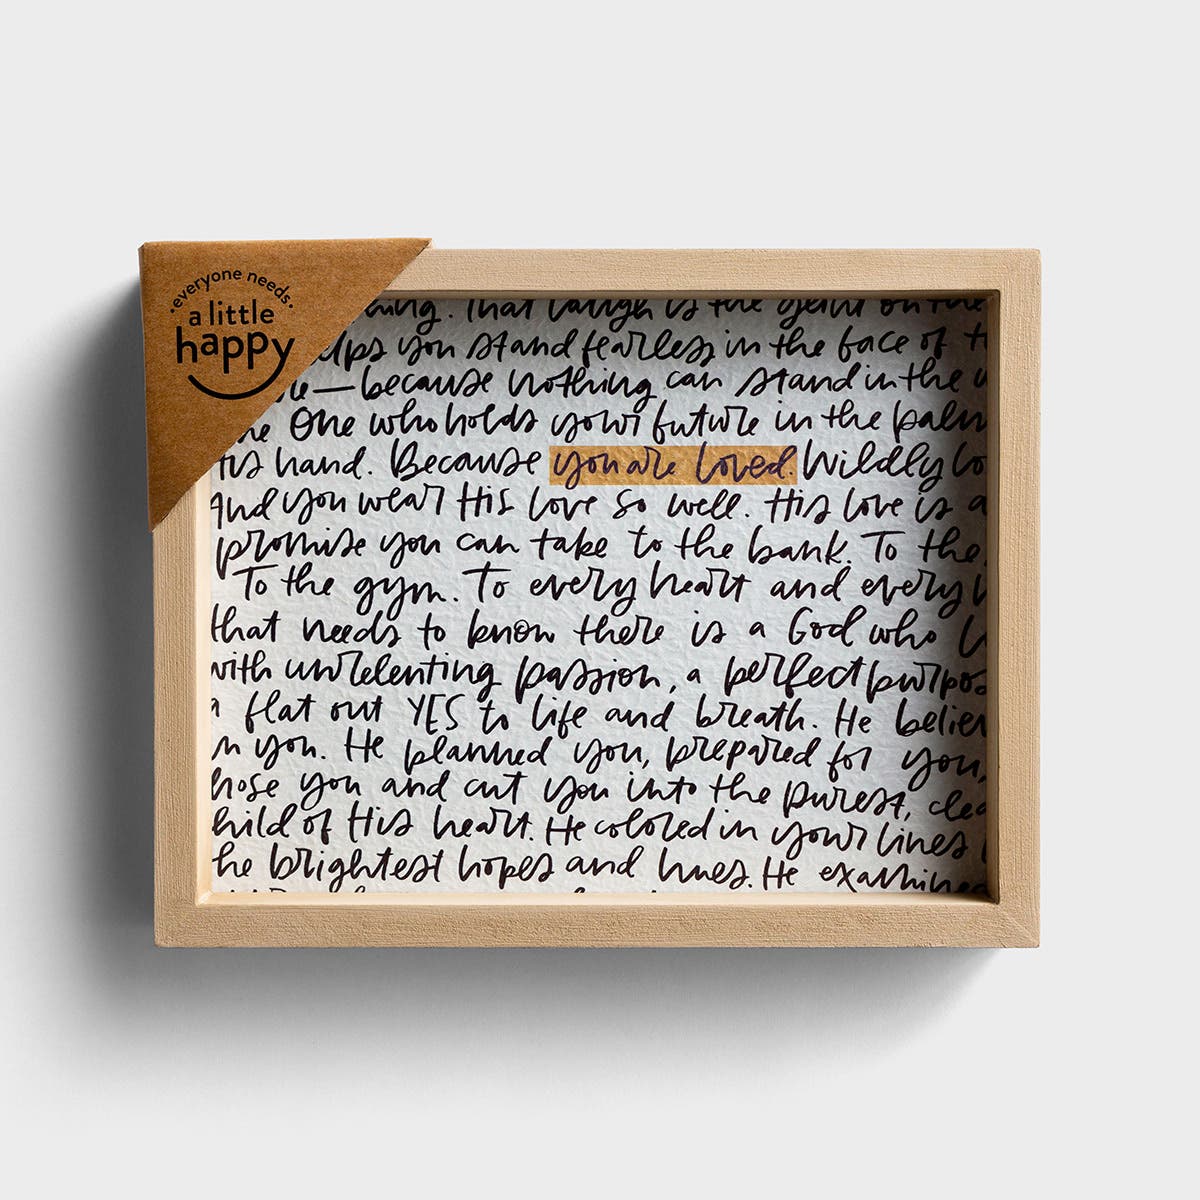 everyone needs
a little
happy
That laugh is the
you stand fearless in the face of
— because nothing can stand in the
One who holds your future in the palm
hand. Because you are loved. Wildly
And you wear His love so well. His love is a
promise you can take to the bank. To the
To the gym. To every heart and every
that needs to know there is a God who
with unrelenting passion, a perfect
a flat out YES to life and breath. He
you. He planned you, prepared for you,
you and cut you into the purest,
of His heart. He colored in your lines
brightest hopes and hues. He